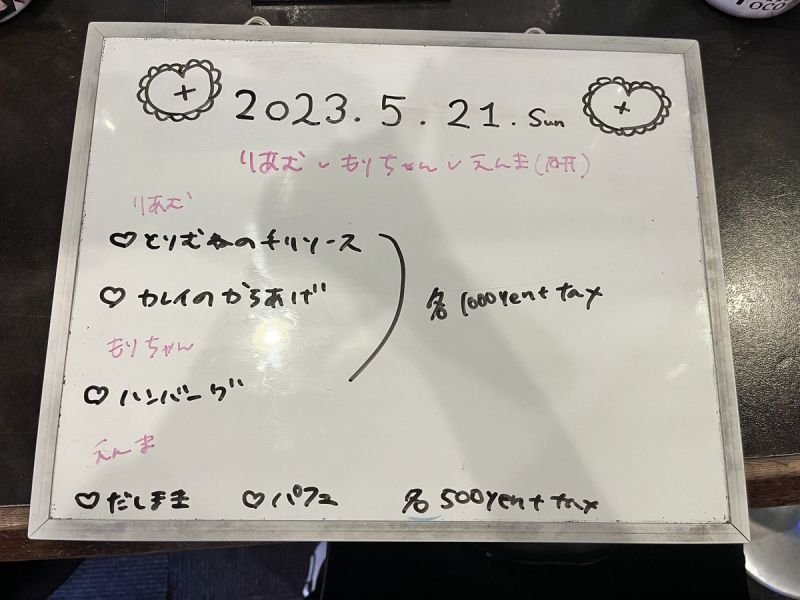 2023. 5. 21. Sun
りあむ、もりちゃん、えんま(研)
りあむ
♡とりむねのチリソース
♡カレイのからあげ
各 1000yen+tax
もりちゃん
♡ハンバーグ
えんま
♡だしまき ♡パフェ 各 500yen+tax